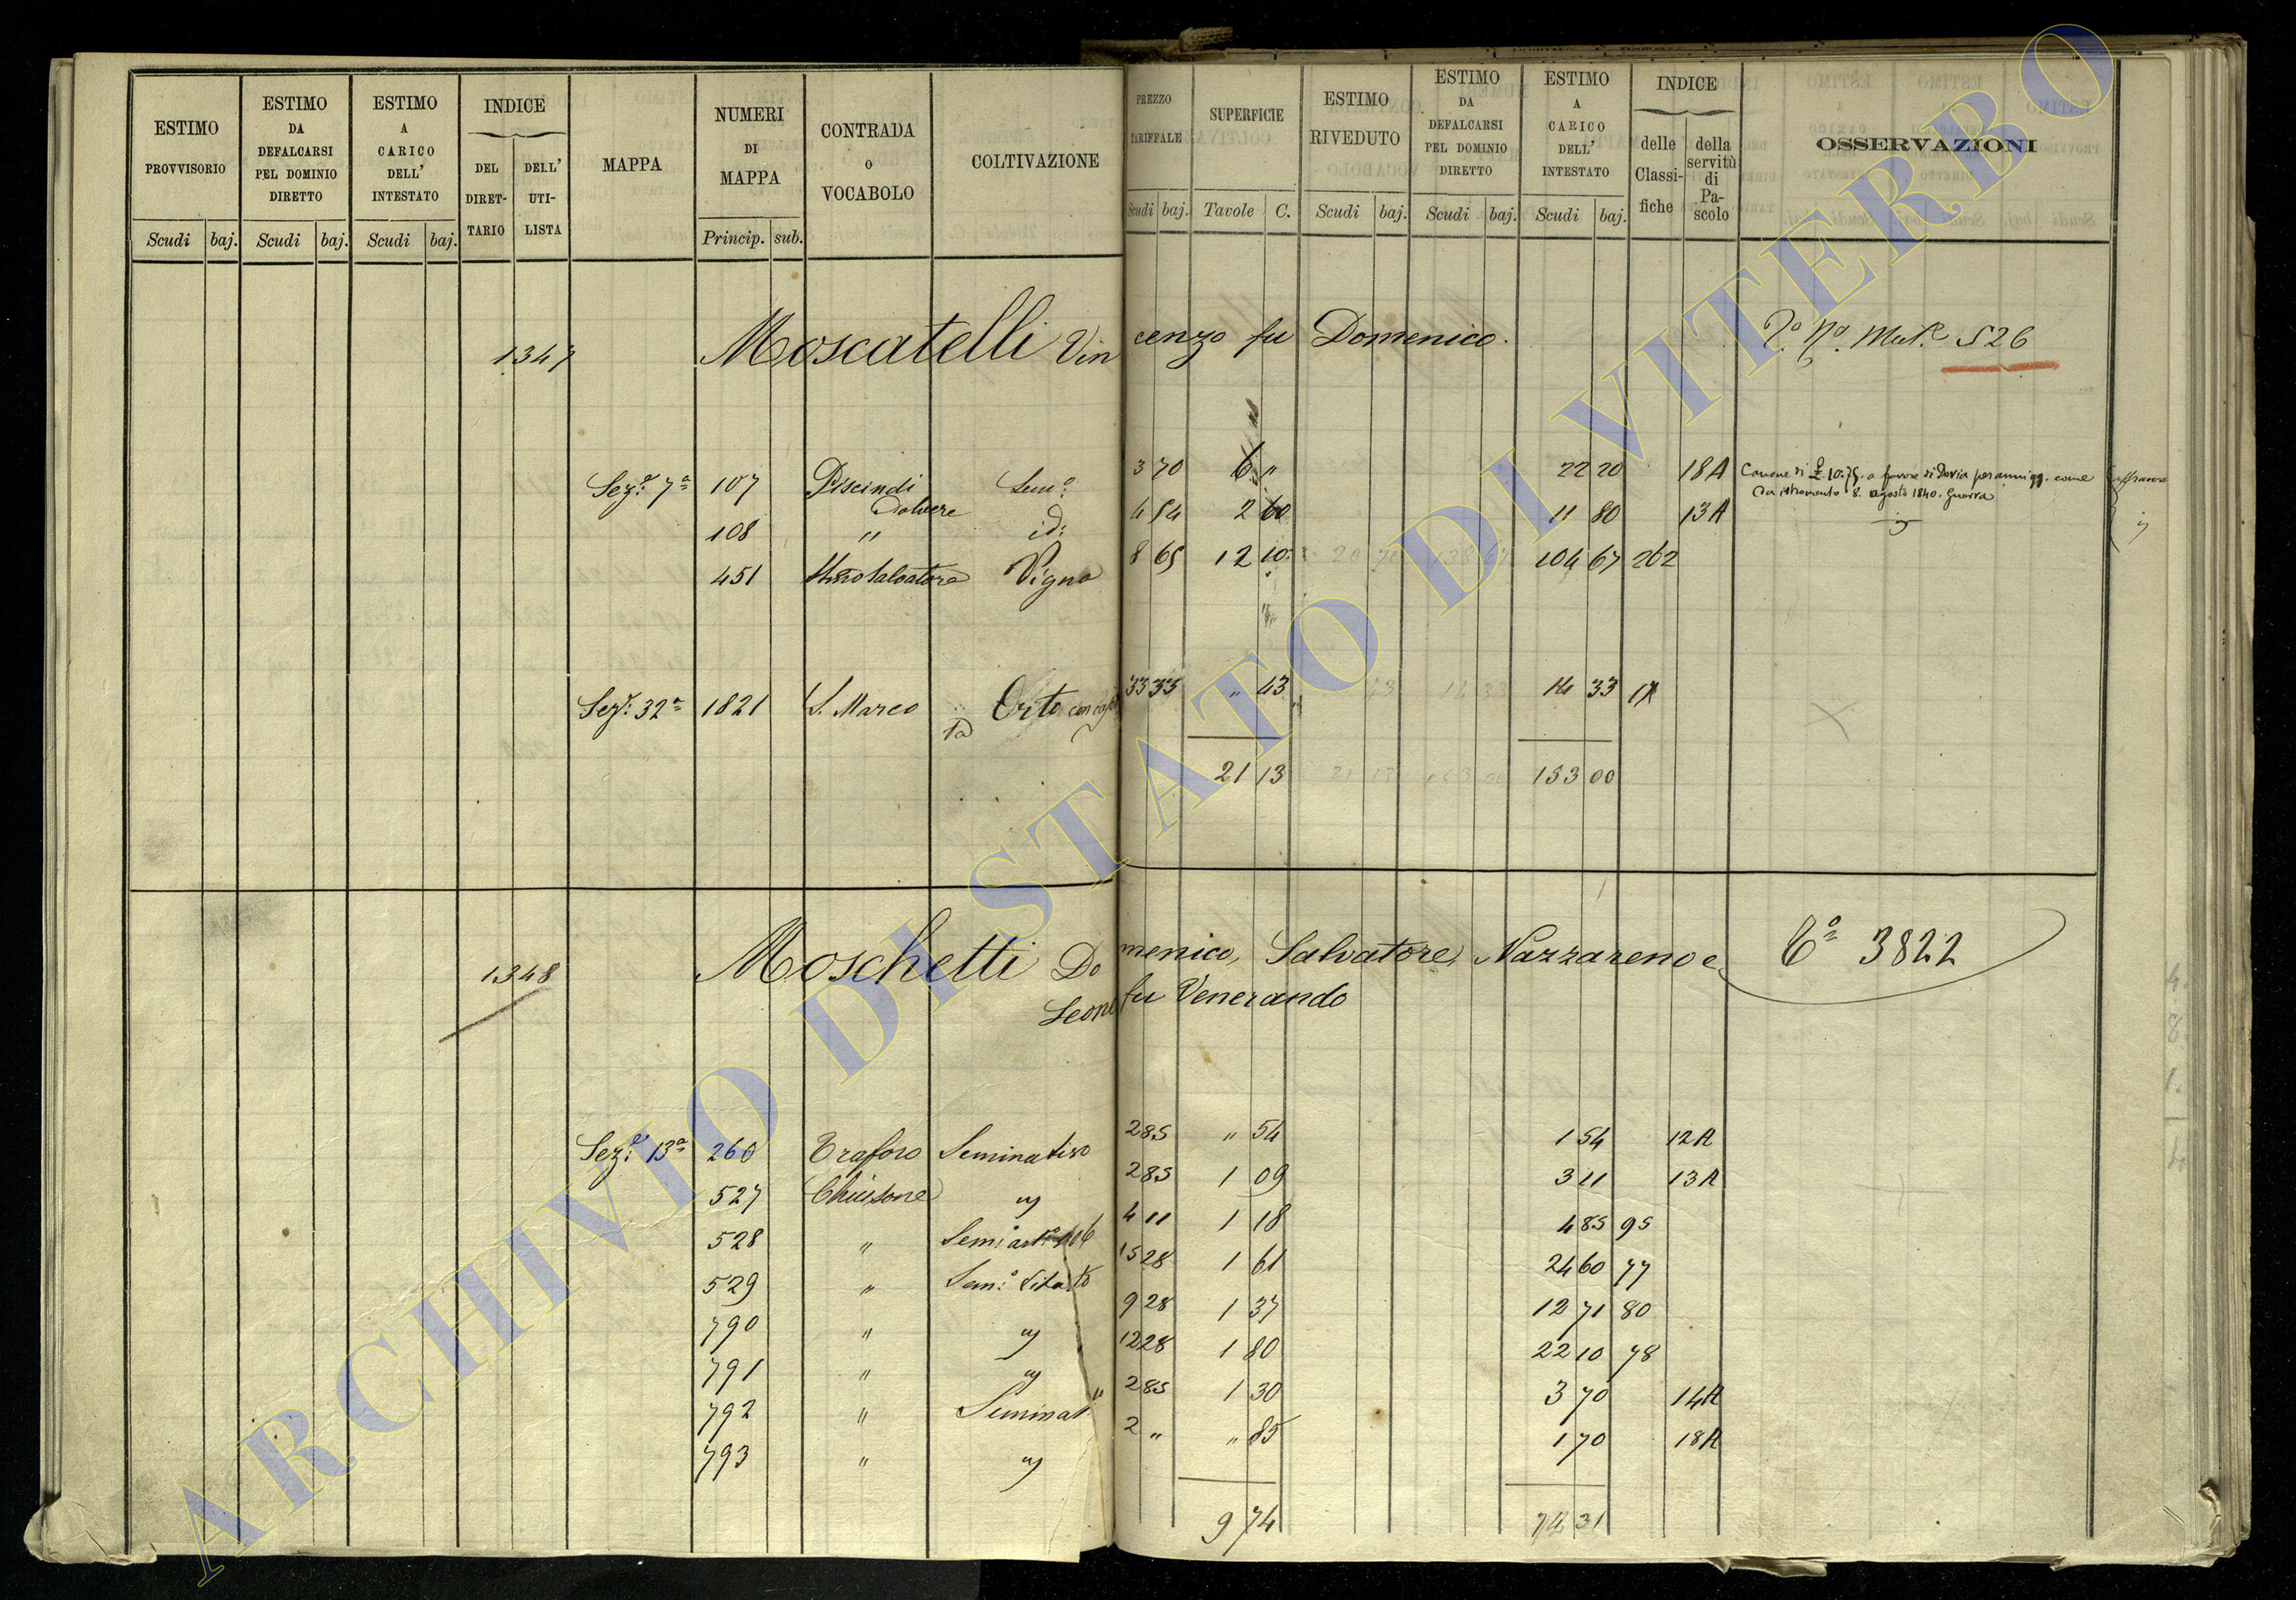 ESTIMO PROVVISORIO Scudi baj.
ESTIMO DA DEFALCARSI PEL DOMINIO DIRETTO Scudi baj.
ESTIMO A CARICO DELL' INTESTATO Scudi baj.
INDICE DEL DIRETTARIO DELL' UTILISTA
MAPPA
NUMERI DI MAPPA Princip. sub.
CONTRADA O VOCABOLO
COLTIVAZIONE
PREZZO TARIFFALE Scudi baj.
SUPERFICIE Tavole C.
ESTIMO RIVEDUTO Scudi baj.
ESTIMO DA DEFALCARSI PEL DOMINIO DIRETTO Scudi baj.
ESTIMO A CARICO DELL' INTESTATO Scudi baj.
INDICE delle Classifiche della servitù di Pascolo
OSSERVAZIONI
1347 Moscatelli Vincenzo fu Domenico. 526
Sez.e 7a 107 Piscindi Sem.o 3 70 6 " 22 20 18A Canone di £ 10.75. a favore di Doria per anni 99. come
da istromento 8. agosto 1840. Guerra
108 " id: 4 54 2 60 11 80 13A
451 Salvatore Vigna 8 65 12 10 104 67 262
Sez.e 32a 1821 S. Marco Orto 33 33 " 43 14 33
21 13 153 00
1348 Moschetti Domenico, Salvatore, Nazzareno e 3822
Leone fu Venerando
Sez.e 13a 260 Traforo Seminativo 2 85 " 54 1 54 12A
527 Chiusone " 2 85 1 09 3 11 13A
528 " 4 11 1 18 4 85 95
529 " Sem.o Vitato 15 28 1 61 24 60 77
790 " " 9 28 1 37 12 71 80
791 " " 12 28 1 80 22 10 78
792 " Seminat.o 2 85 1 30 3 70 14A
793 " " 2 " " 85 1 70 18A
9 74 74 31
ARCHIVIO DI STATO DI VITERBO